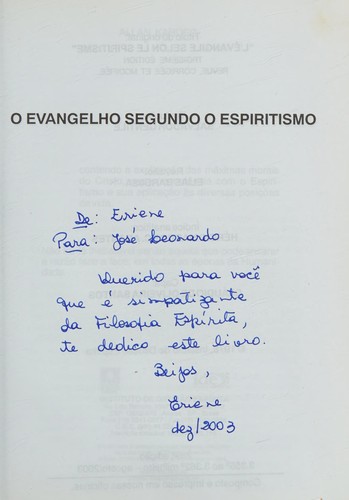 O EVANGELHO SEGUNDO O ESPIRITISMO
De: Eriene
Para: José Leonardo
Querido para você
que é simpatizante
da Filosofia Espírita,
te dedico este livro.
Beijos,
Eriene
dez/2003